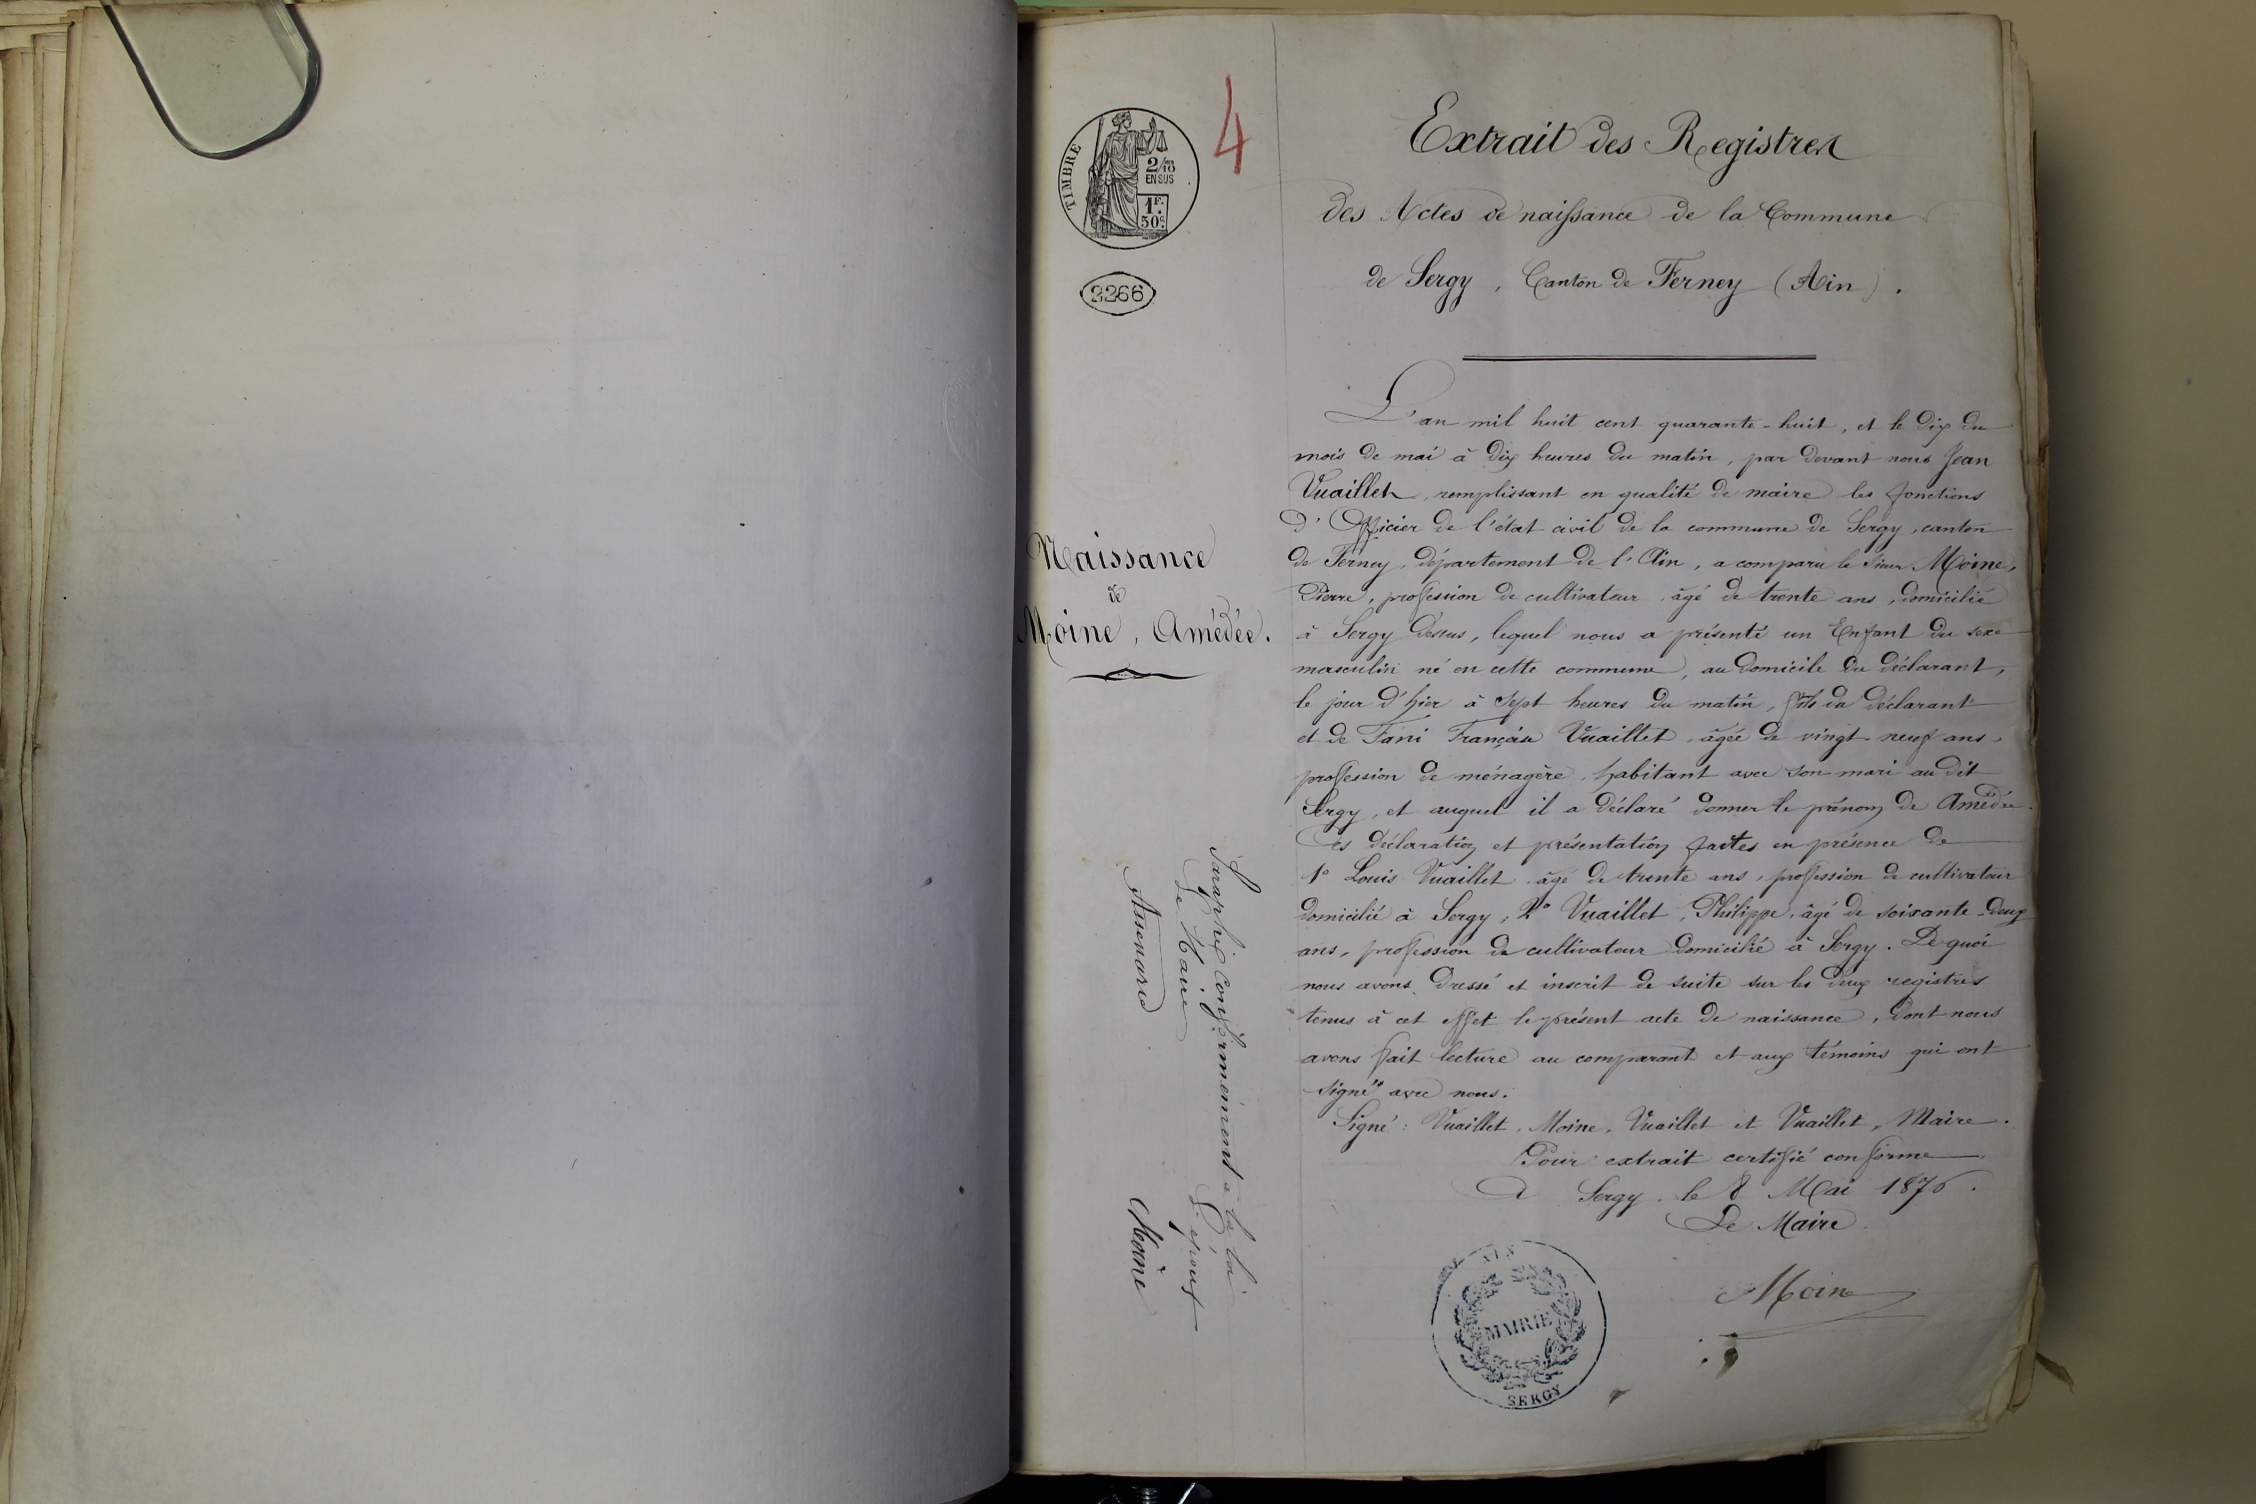 4
TIMBRE
2/10
EN SUS
1F.
50c.
2266
Extrait des Registres
des Actes de naissance de la Commune
de Sergy, Canton de Ferney (Ain).
Naissance
de
Moine, Amédée.
L'an mil huit cent quarante-huit, et le dix du
mois de mai à dix heures du matin, par devant nous Jean
Vuaillet, remplissant en qualité de maire les fonctions
d'Officier de l'état civil de la commune de Sergy, canton
de Ferney, département de l'Ain, a comparu le sieur Moine,
Pierre, profession de cultivateur, âgé de trente ans, domicilié
à Sergy Dessus, lequel nous a présenté un Enfant du sexe
masculin né en cette commune, au domicile du déclarant,
le jour d'hier à sept heures du matin, fils du déclarant
et de Fani Françoise Vuaillet, âgée de vingt neuf ans,
profession de ménagère, habitant avec son mari au dit
Sergy, et auquel il a déclaré donner le prénom de Amédée.
Les déclaration et présentation faites en présence de
1° Louis Vuaillet, âgé de trente ans, profession de cultivateur
domicilié à Sergy, 2° Vuaillet, Philippe, âgé de soixante-deux
ans, profession de cultivateur domicilié à Sergy. De quoi
nous avons dressé et inscrit de suite sur les deux registres
tenus à cet effet le présent acte de naissance, dont nous
avons fait lecture au comparant et aux témoins qui ont
signé avec nous.
Signé: Vuaillet, Moine, Vuaillet et Vuaillet, Maire.
Pour extrait certifié conforme
A Sergy, le 8 Mai 1876.
Le Maire
Moine
AIN
MAIRIE
SERGY
Paraphé conformément à la loi
Le Maire L'époux
Assemard Moine